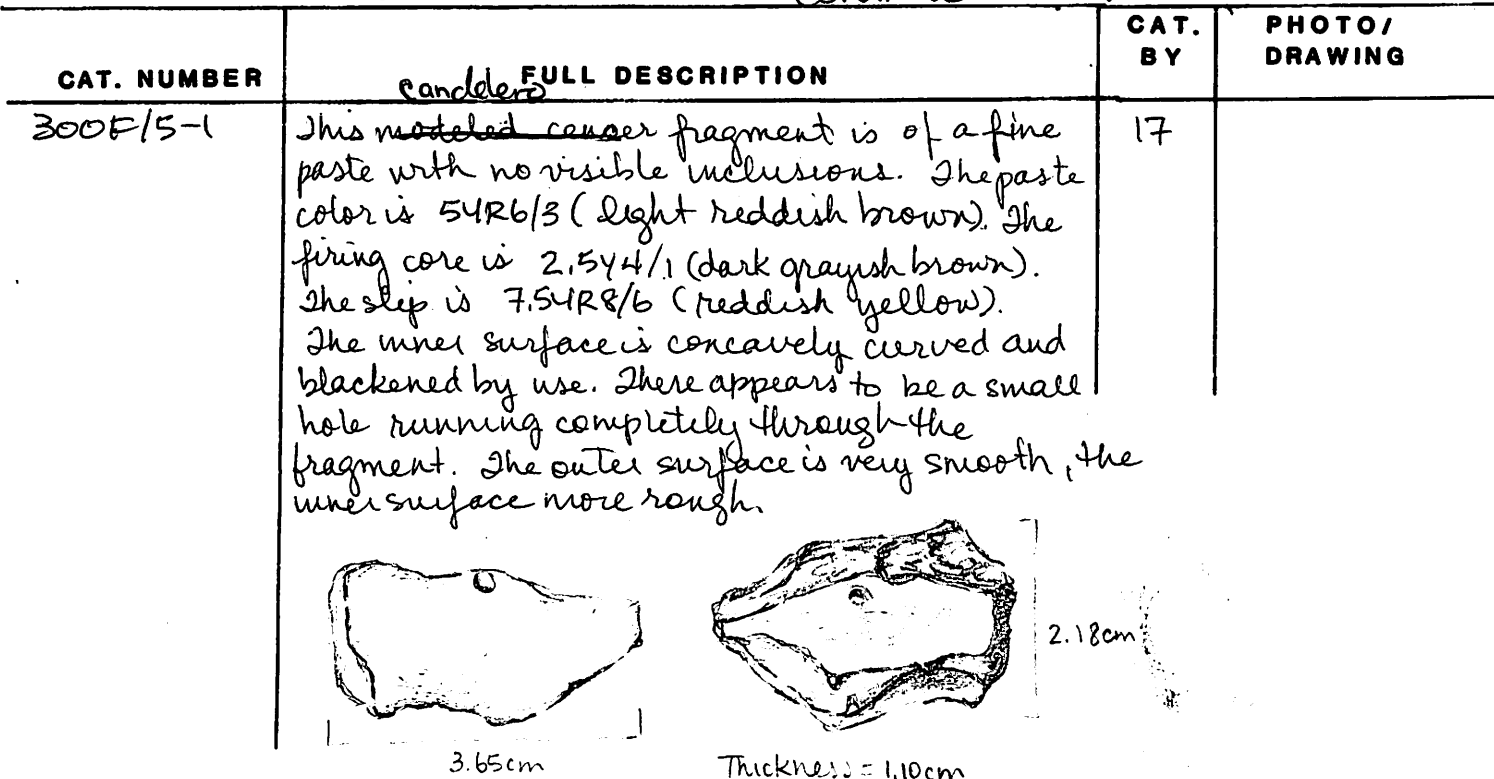 CAT. NUMBER
FULL DESCRIPTION
CAT. BY
PHOTO/ DRAWING
300F/5-1
candelero
This modeled censer fragment is of a fine
paste with no visible inclusions. The paste
color is 5YR6/3 (light reddish brown). The
firing core is 2.5Y4/1 (dark grayish brown).
The slip is 7.5YR8/6 (reddish yellow).
The inner surface is concavely curved and
blackened by use. There appears to be a small
hole running completely through the
fragment. The outer surface is very smooth, the
inner surface more rough.
17
2.18cm
3.65cm
Thickness = 1.10cm